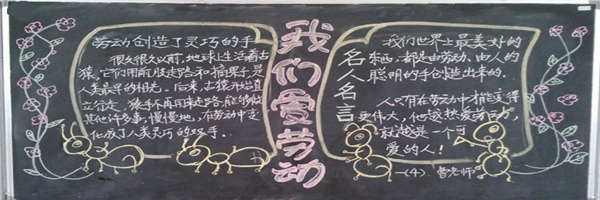 劳动创造了灵巧的手
很久很久以前,地球上生活着古
猿。它们用前肢走路和摘果子,是
人类最早的祖先。后来,古猿开始直
立行走,猿手不再用来走路,能够做
其他许多事,慢慢地,在劳动中变
化成了人类灵巧的双手。
我们爱劳动
名人名言
我们世界上最美好的
东西,都是由劳动、由人的
聪明的手创造出来的。
人只有在劳动中才能变得
更伟大,他越热爱劳动,
就越是一个可
爱的人!
一(4) 曹老师